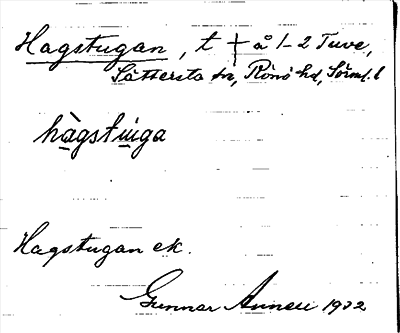 Hagstugan, t † å 1–2 Tuve,
Sättersta sn, Rönö hd, Sörml. l
hàgstuga
Hagstugan ek.
Gunnar 1932